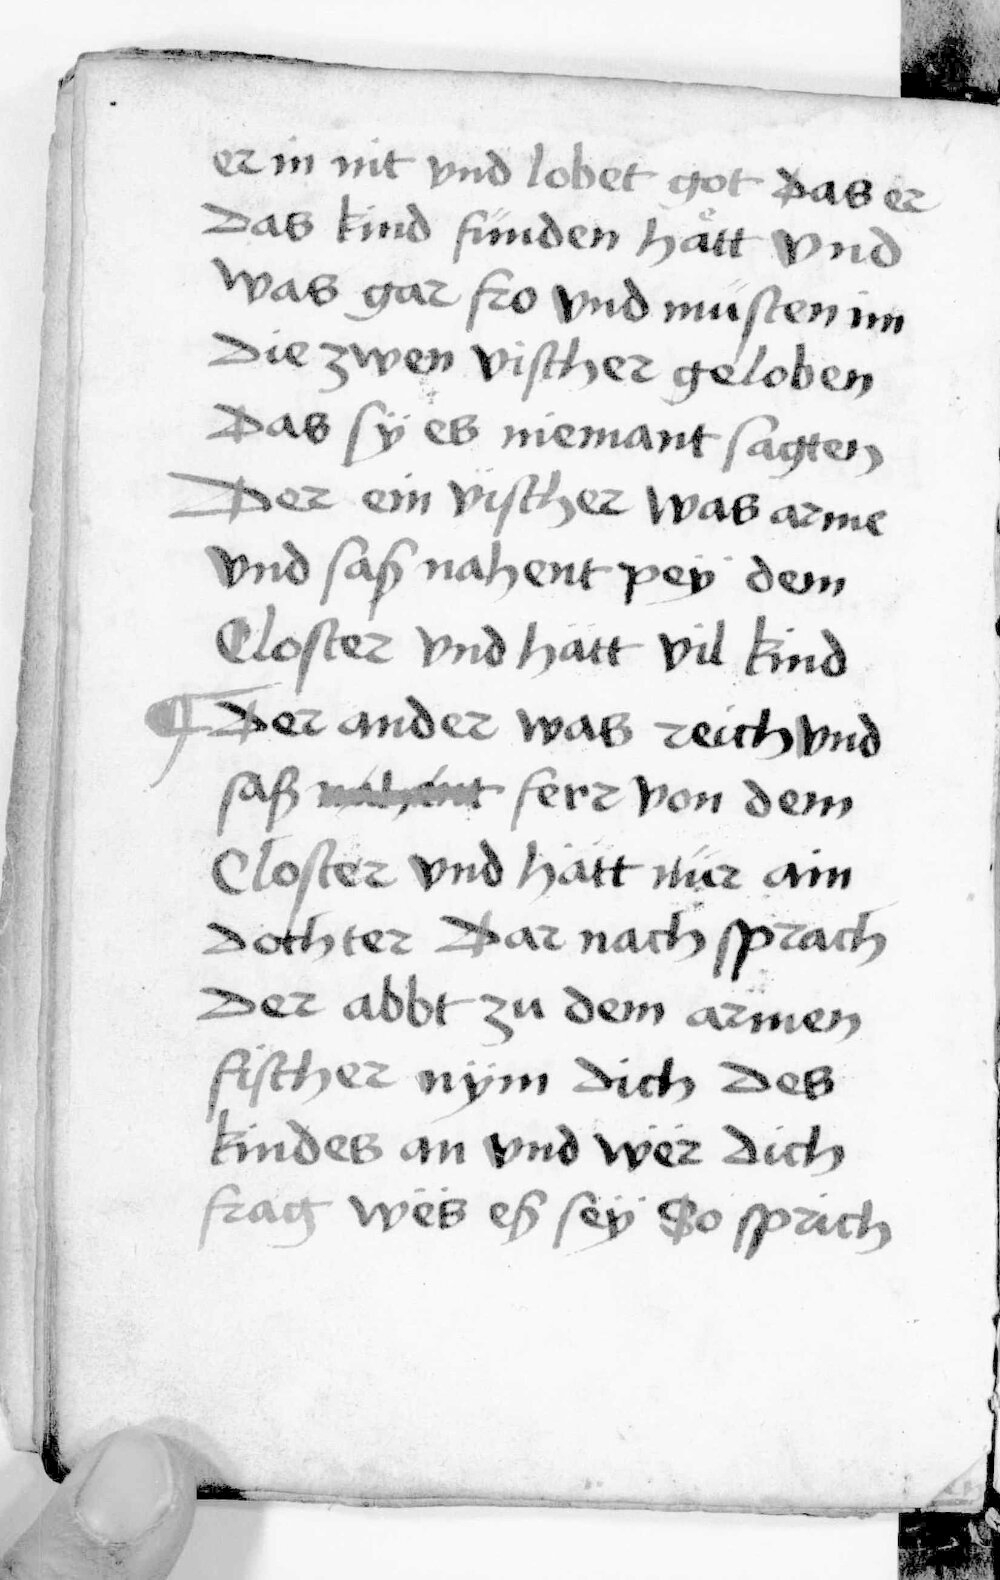 er in nit vnd lobet got Das er
Das kind fünden hätt vnd
was gar fro vnd müsten im
Die zwen vischer geloben
Das sÿ es niemant sagten
Der ein vischer was arme
vnd saß nahent peÿ dem
Closter vnd hätt vil kind
¶ Der ander was reich vnd
saß nahent ferr von dem
Closter vnd hätt nür ain
dochter Dar nach sprach
Der abbt zu dem armen
fischer nÿm dich des
kindes an vnd wër dich
frag wës eß seÿ So sprich